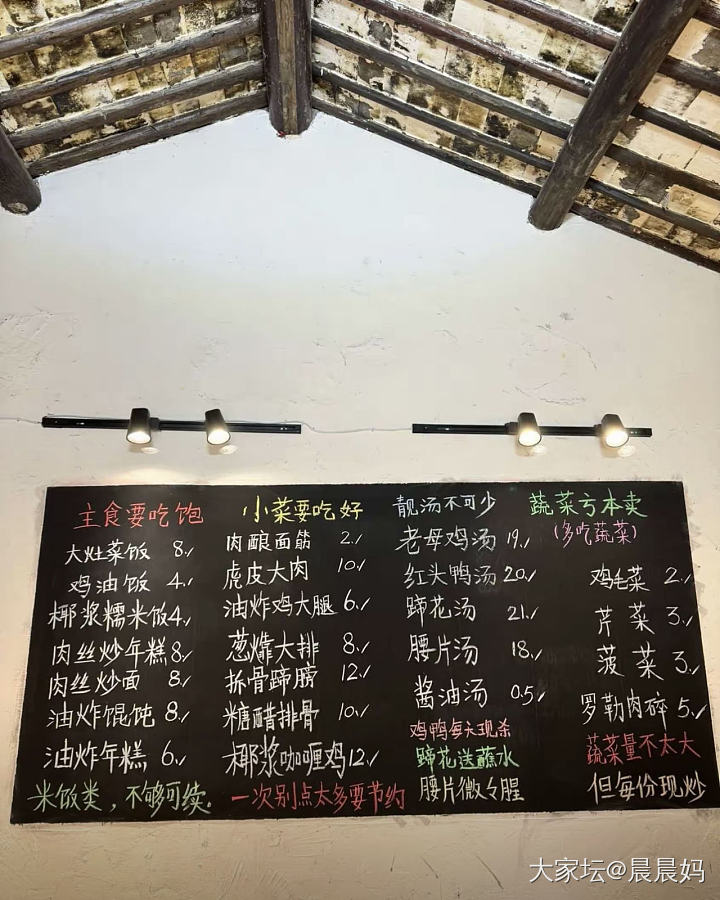 主食要吃饱
大灶菜饭 8./
鸡油饭 4./
椰浆糯米饭4./
肉丝炒年糕8./
肉丝炒面 8./
油炸馄饨 8./
油炸年糕 6./
米饭类，不够可续.
小菜要吃好
肉酿面筋 2./
虎皮大肉 10./
油炸鸡大腿 6./
葱㸆大排 8./
拆骨蹄膀 12./
糖醋排骨 10./
椰浆咖喱鸡12./
一次别点太多要节约
靓汤不可少
老母鸡汤 19./
红头鸭汤 20./
蹄花汤 21./
腰片汤 18./
酱油汤 0.5/
鸡鸭每天现杀
蹄花送蘸水
腰片微々腥
蔬菜亏本卖
(多吃蔬菜)
鸡毛菜 2./
芹菜 3./
菠菜 3./
罗勒肉碎 5./
蔬菜量不太大
但每份现炒
大家坛@晨晨妈